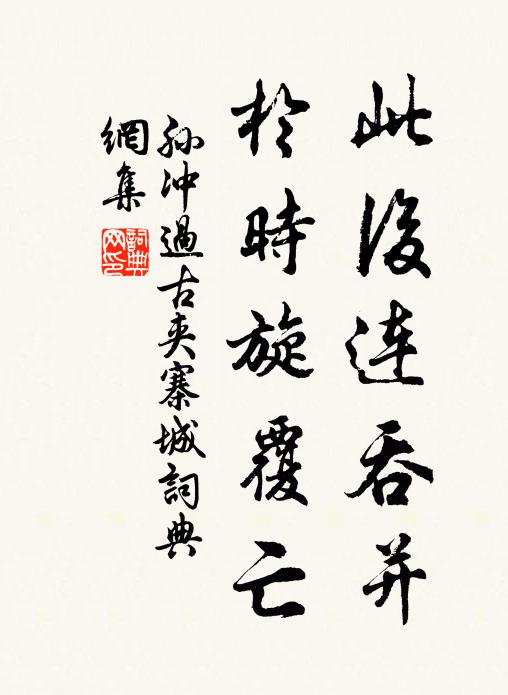 此後連吞并
於時旋覆亡
孙冲過古夹寨城詞典
網集
詞典
网印